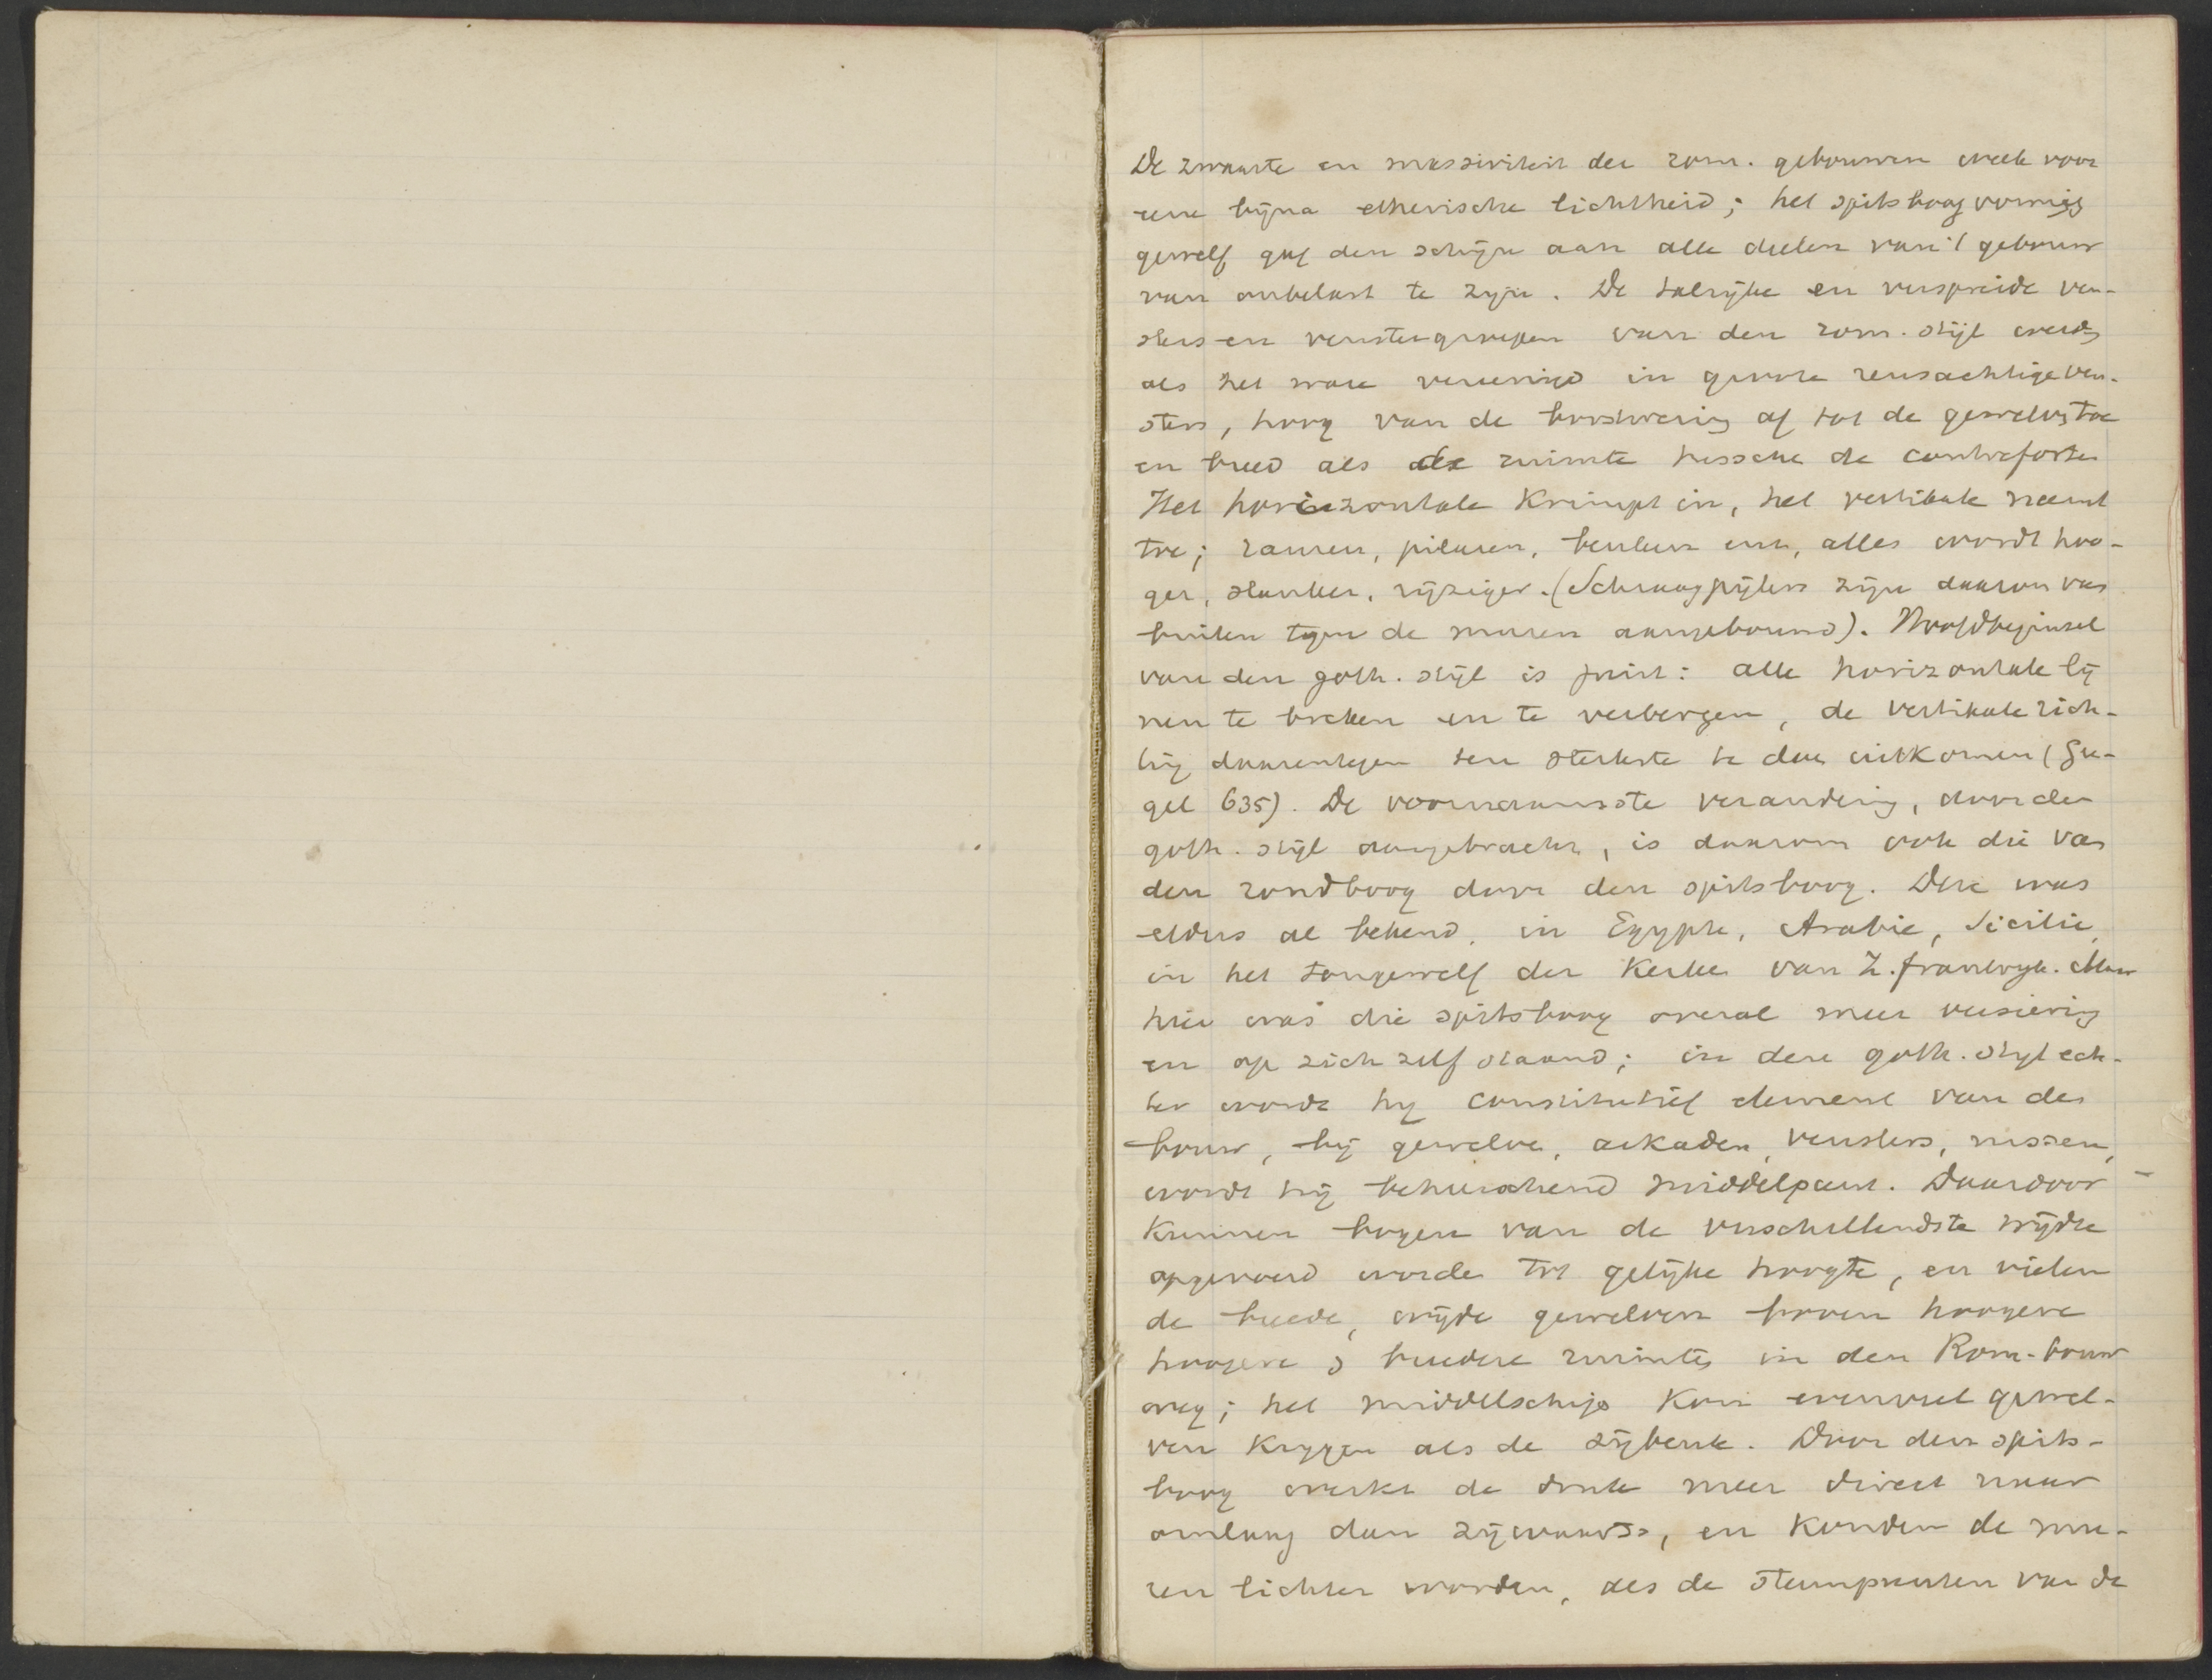 De zwaarte en massiviteit der rom. gebouwen week voor
eene bijna etherische lichtheid; het spitsboogvormig
gewelf gaf den schijn aan alle deelen van 't gebouw
van onbelast te zijn. De talrijke en verspreide ven-
sters en venstergroepen van den rom. stijl werd
als het ware vereenigd in groote reusachtige ven-
sters, hoog van de borstwering af tot de gewelven toe
en breed als de ruimte tussche de contreforten
Het horizontale krimpt in, het vertikale neemt
toe; ramen, pilaren, beelden enz, alles wordt hoo-
ger, slanker, rijziger. (Schraagpijlers zijn daarom van
buiten tegen de muren aangebouwd). Hoofdbeginsel
van den goth. stijl is juist: alle horizontale lij
nen te breken en te verbergen, de vertikale rich-
ting daarentegen ten sterkste te doen uitkomen (Gu-
gel 635). De voornaamste verandering, door den
goth. stijl aangebracht, is daarom ook die van
den rondboog door den spitsboog. Deze was
elders al bekend, in Egypte, Arabie, Sicilie,
in het tongewelf der kerken van Z. frankrijk. Maar
hier was die spitsboog overal meer versiering
en op zich zelf staand; in deze goth. stijl ech-
ter wordt hij constitutief element van den
bouw, bij gewelven, arkaden, vensters, nissen,
wordt hij beheerschend middelpunt. Daardoor
kunnen bogen van de verschillendste wijdte
opgevoerd worden tot gelijke hoogte, en vielen
de breede, wijde gewelven boven hoogere
hoogere & breedere ruimtes in den Rom-bouw
weg; het middelschip kon evenveel gewel-
ven krijgen als de zijbeuk. Door den spits-
boog werkt de druk meer direct naar
omlaag dan zijwaarts, en konden de mu-
ren lichter worden, als de steunpunten van de